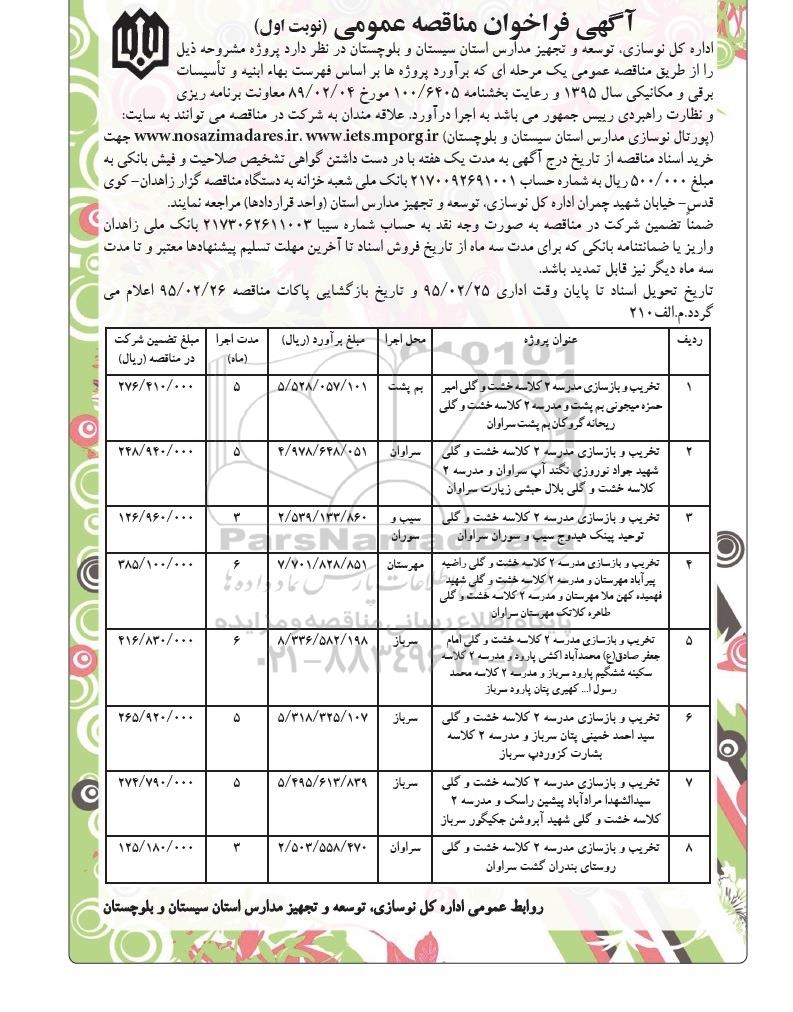 آگهی فراخوان مناقصه عمومی (نوبت اول)
اداره کل نوسازی، توسعه و تجهیز مدارس استان سیستان و بلوچستان در نظر دارد پروژه مشروحه ذیل
را از طریق مناقصه عمومی یک مرحله ای که برآورد پروژه ها بر اساس فهرست بهاء ابنیه و تأسیسات
برقی و مکانیکی سال ۱۳۹۵ و رعایت بخشنامه ۱۰۰/۶۴۰۵ مورخ ۸۹/۰۲/۰۴ معاونت برنامه ریزی
و نظارت راهبردی رییس جمهور می باشد به اجرا درآورد. علاقه مندان به شرکت در مناقصه می توانند به سایت:
(پورتال نوسازی مدارس استان سیستان و بلوچستان) www.nosazimadares.ir. www.iets.mporg.ir جهت
خرید اسناد مناقصه از تاریخ درج آگهی به مدت یک هفته با در دست داشتن گواهی تشخیص صلاحیت و فیش بانکی به
مبلغ ۵۰۰/۰۰۰ ریال به شماره حساب ۲۱۷۰۰۹۲۶۹۱۰۰۱ بانک ملی شعبه خزانه به دستگاه مناقصه گزار زاهدان- کوی
قدس- خیابان شهید چمران اداره کل نوسازی، توسعه و تجهیز مدارس استان (واحد قراردادها) مراجعه نمایند.
ضمناً تضمین شرکت در مناقصه به صورت وجه نقد به حساب شماره سیبا ۲۱۷۳۰۶۲۶۱۱۰۰۳ بانک ملی زاهدان
واریز یا ضمانتنامه بانکی که برای مدت سه ماه از تاریخ فروش اسناد تا آخرین مهلت تسلیم پیشنهادها معتبر و تا مدت
سه ماه دیگر نیز قابل تمدید باشد.
تاریخ تحویل اسناد تا پایان وقت اداری ۹۵/۰۲/۲۵ و تاریخ بازگشایی پاکات مناقصه ۹۵/۰۲/۲۶ اعلام می
گردد.م.الف۲۱۰
ردیف عنوان پروژه محل اجرا مبلغ برآورد (ریال) مدت اجرا مبلغ تضمین شرکت
(ماه) در مناقصه (ریال)
۱ تخریب و بازسازی مدرسه ۲ کلاسه خشت و گلی امیر بم پشت ۵/۵۲۸/۰۵۷/۱۰۱ ۵ ۲۷۶/۴۱۰/۰۰۰
حمزه میجونی بم پشت و مدرسه ۲ کلاسه خشت و گلی
ریحانه گروکان بم پشت سراوان
۲ تخریب و بازسازی مدرسه ۲ کلاسه خشت و گلی سراوان ۴/۹۷۸/۶۴۸/۰۵۱ ۵ ۲۴۸/۹۴۰/۰۰۰
شهید جواد نوروزی نگند آپ سراوان و مدرسه ۲
کلاسه خشت و گلی بلال حبشی زیارت سراوان
۳ تخریب و بازسازی مدرسه ۲ کلاسه خشت و گلی سیب و ۲/۵۳۹/۱۳۳/۸۶۰ ۳ ۱۲۶/۹۶۰/۰۰۰
توحید پینک هیدوج سیب و سوران سراوان سوران
۴ تخریب و بازسازی مدرسه ۲ کلاسه خشت و گلی راضیه مهرستان ۷/۷۰۱/۸۲۸/۸۵۱ ۶ ۳۸۵/۱۰۰/۰۰۰
پیرآباد مهرستان و مدرسه ۲ کلاسه خشت و گلی شهید
فهمیده کهن ملا مهرستان و مدرسه ۲ کلاسه خشت و گلی
طاهره کلاتک مهرستان سراوان
۵ تخریب و بازسازی مدرسه ۲ کلاسه خشت و گلی امام سرباز ۸/۳۳۶/۵۸۲/۱۹۸ ۶ ۴۱۶/۸۳۰/۰۰۰
جعفر صادق(ع) محمدآباد اکشی پارود و مدرسه ۲ کلاسه
سکینه ششگیم پارود سرباز و مدرسه ۲ کلاسه محمد
رسول ا... کهیری پتان پارود سرباز
۶ تخریب و بازسازی مدرسه ۲ کلاسه خشت و گلی سرباز ۵/۳۱۸/۳۲۵/۱۰۷ ۵ ۲۶۵/۹۲۰/۰۰۰
سید احمد خمینی پتان سرباز و مدرسه ۲ کلاسه
بشارت کزوردپ سرباز
۷ تخریب و بازسازی مدرسه ۲ کلاسه خشت و گلی سرباز ۵/۴۹۵/۶۱۳/۸۳۹ ۵ ۲۷۴/۷۹۰/۰۰۰
سیدالشهدا مرادآباد پیشین راسک و مدرسه ۲
کلاسه خشت و گلی شهید آبروشن جکیگور سرباز
۸ تخریب و بازسازی مدرسه ۲ کلاسه خشت و گلی سراوان ۲/۵۰۳/۵۵۸/۴۷۰ ۳ ۱۲۵/۱۸۰/۰۰۰
روستای بندران گشت سراوان
ParsNamadData
پایگاه اطلاع رسانی مناقصه و مزایده
۰۲۱-۸۸۳۴۹۶۷۰-۵
روابط عمومی اداره کل نوسازی، توسعه و تجهیز مدارس استان سیستان و بلوچستان